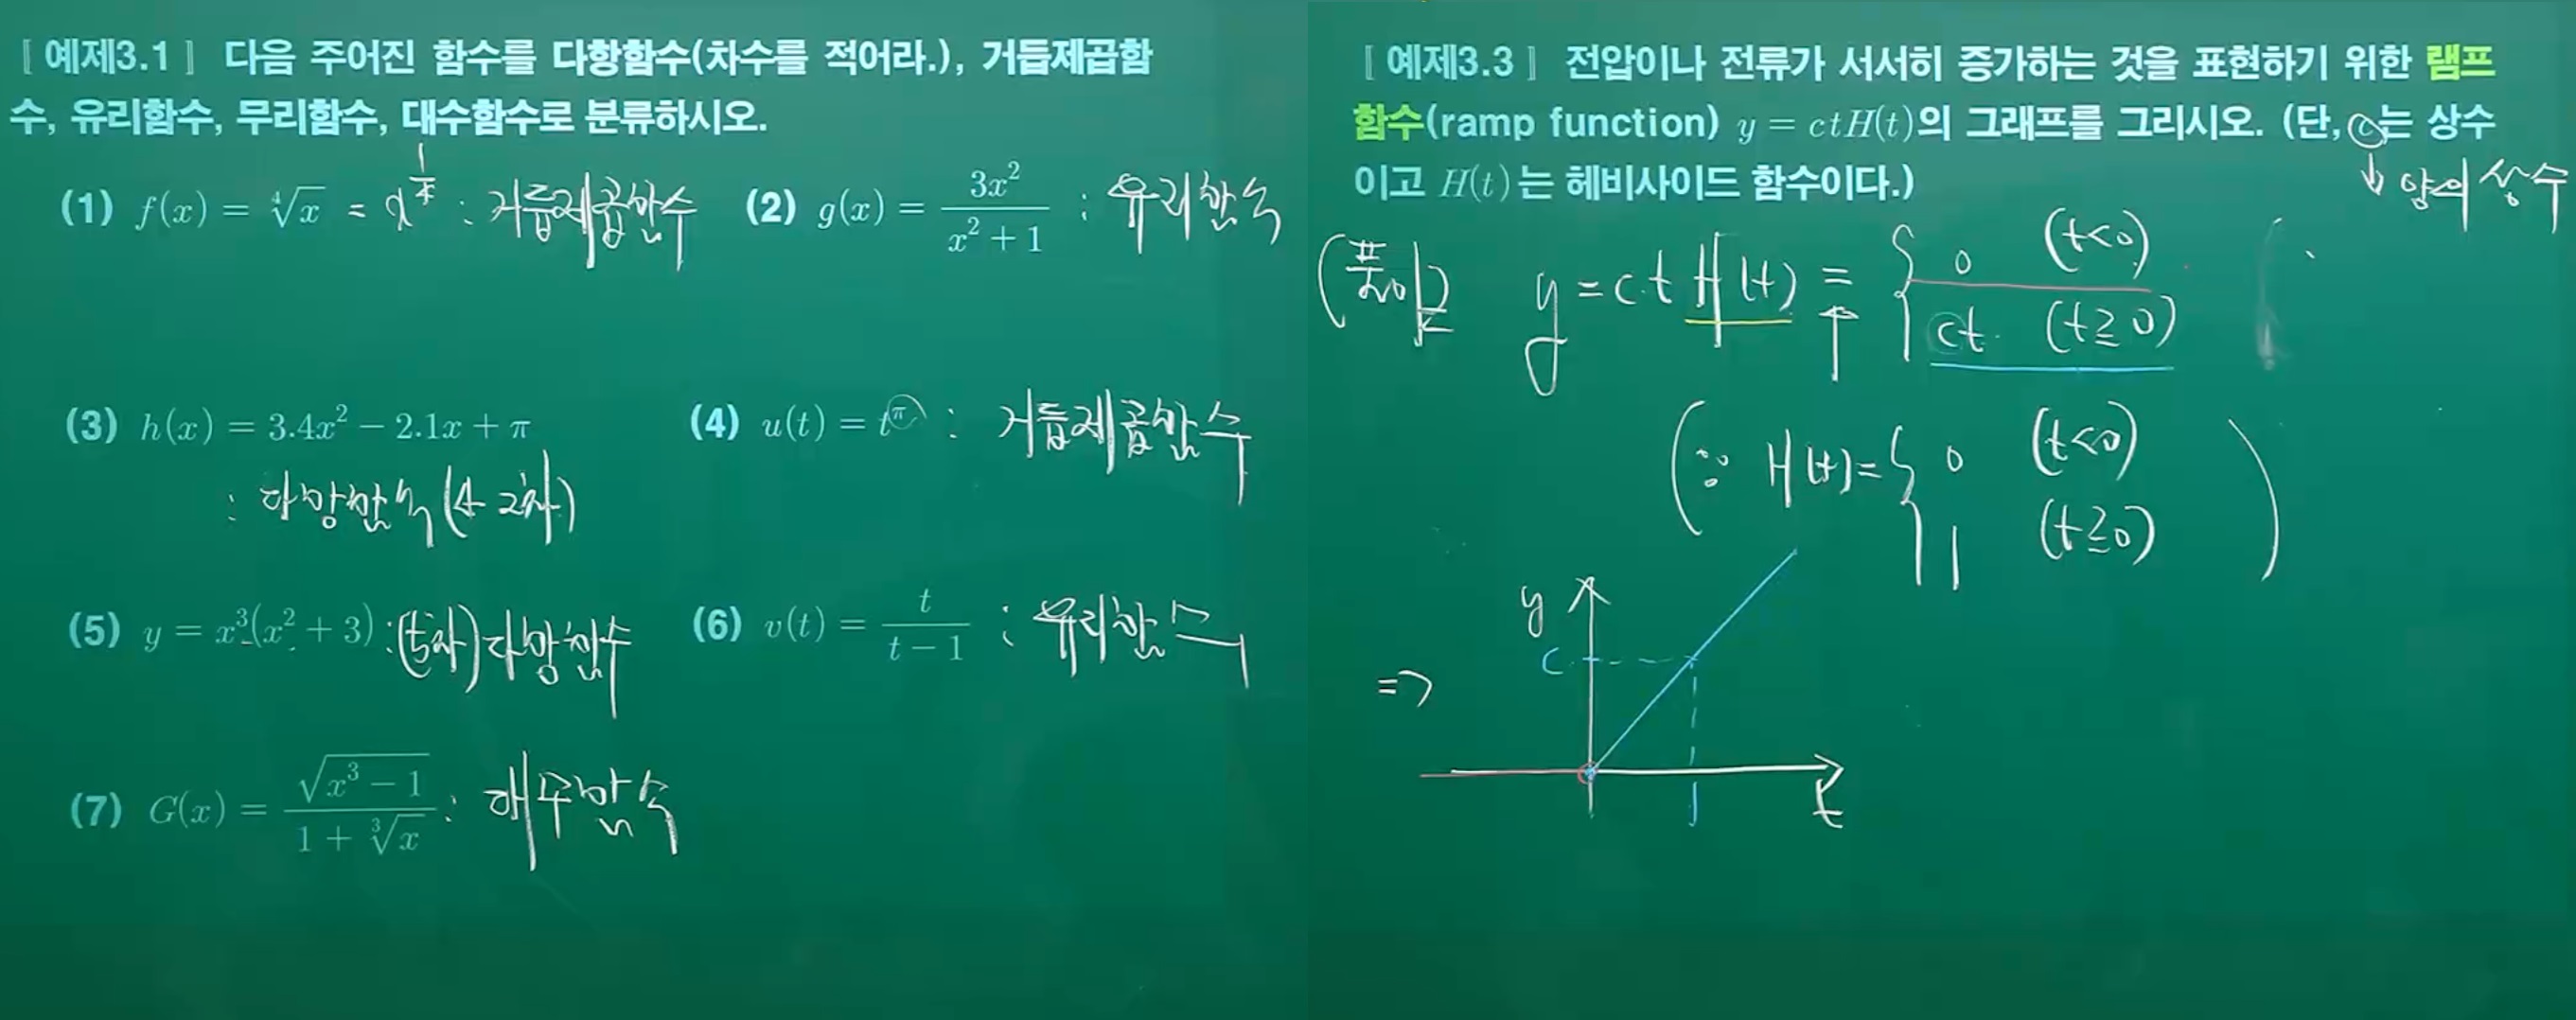 [ 예제3.1 ] 다음 주어진 함수를 다항함수(차수를 적어라.), 거듭제곱함
수, 유리함수, 무리함수, 대수함수로 분류하시오.
(1) f(x) = ∜x = x^{1/4} : 거듭제곱함수
(2) g(x) = 3x²/(x² + 1) : 유리함수
(3) h(x) = 3.4x² − 2.1x + π
: 다항함수 (차수 2차)
(4) u(t) = t^π : 거듭제곱함수
(5) y = x³(x² + 3) : (5차) 다항함수
(6) v(t) = t/(t − 1) : 유리함수
(7) G(x) = √(x³ − 1)/(1 + ∛x) : 대수함수
[ 예제3.3 ] 전압이나 전류가 서서히 증가하는 것을 표현하기 위한 램프
함수(ramp function) y = ctH(t)의 그래프를 그리시오. (단, c는 상수
이고 H(t)는 헤비사이드 함수이다.)
↓ 양의 상수
(풀이) y = ct H(t) = { 0 (t<0)
↑ ct (t≧0)
(∵ H(t) = { 0 (t<0)
1 (t≧0) )
y
c
⇒
t
1